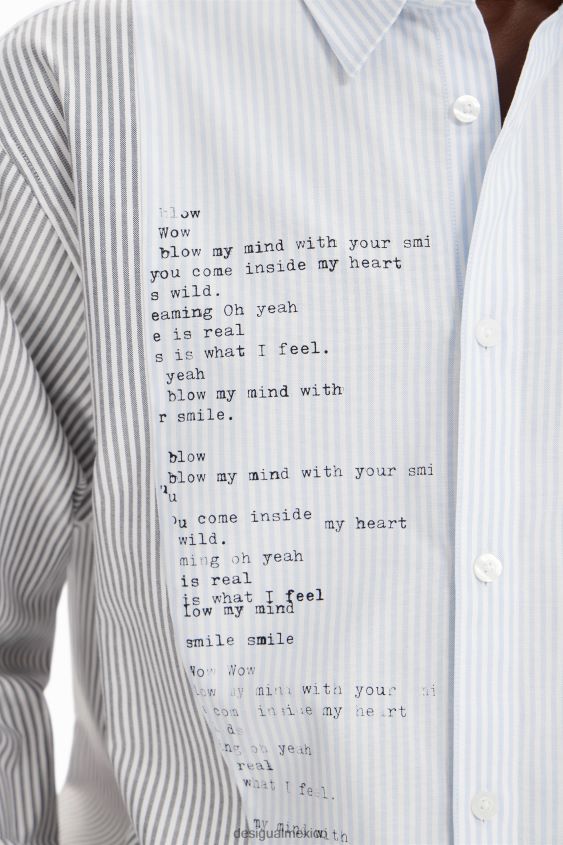 blow
Wow
blow my mind with your smi
you come inside my heart
s wild.
eaming Oh yeah
e is real
s is what I feel.
yeah
blow my mind with
r smile.
blow
blow my mind with your smi
u
ou come inside my heart
wild.
ming oh yeah
is real
is what I feel
low my mind
smile smile
Wow Wow
low my mind with your mi
com inside my heart
ds
ng oh yeah
real
what I feel.
my mind with
desigualmexico